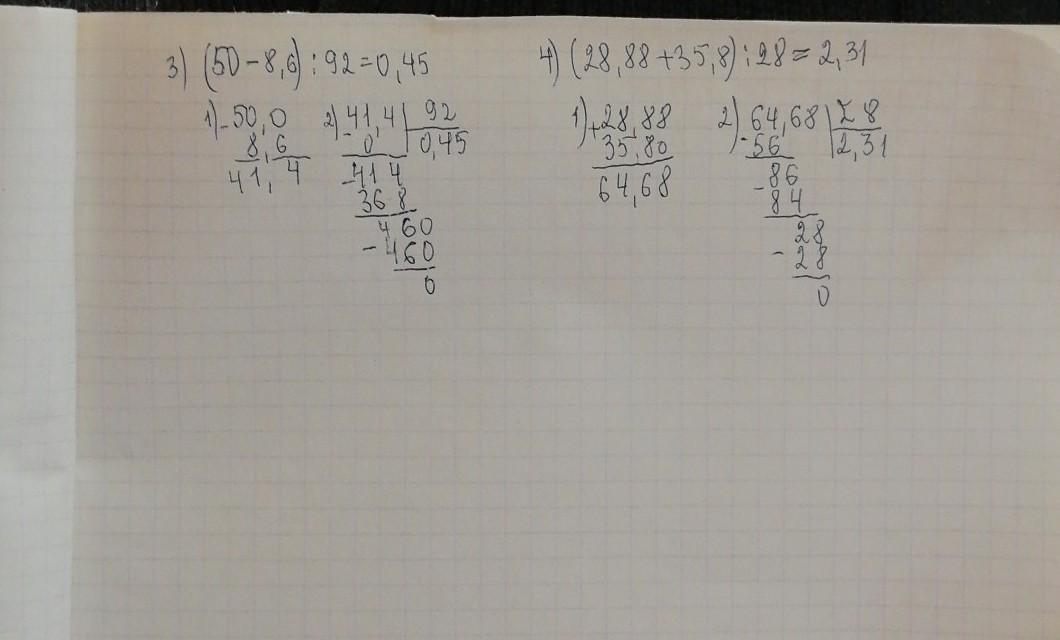 3) (50-8,6):92=0,45
1) -50,0
8,6
41,4
2) 41,4 | 92
-0 | 0,45
-414
368
460
-460
0
4) (28,88+35,8):28=2,31
1) +28,88
35,80
64,68
2) 64,68 | 28
-56 | 2,31
-86
84
28
-28
0